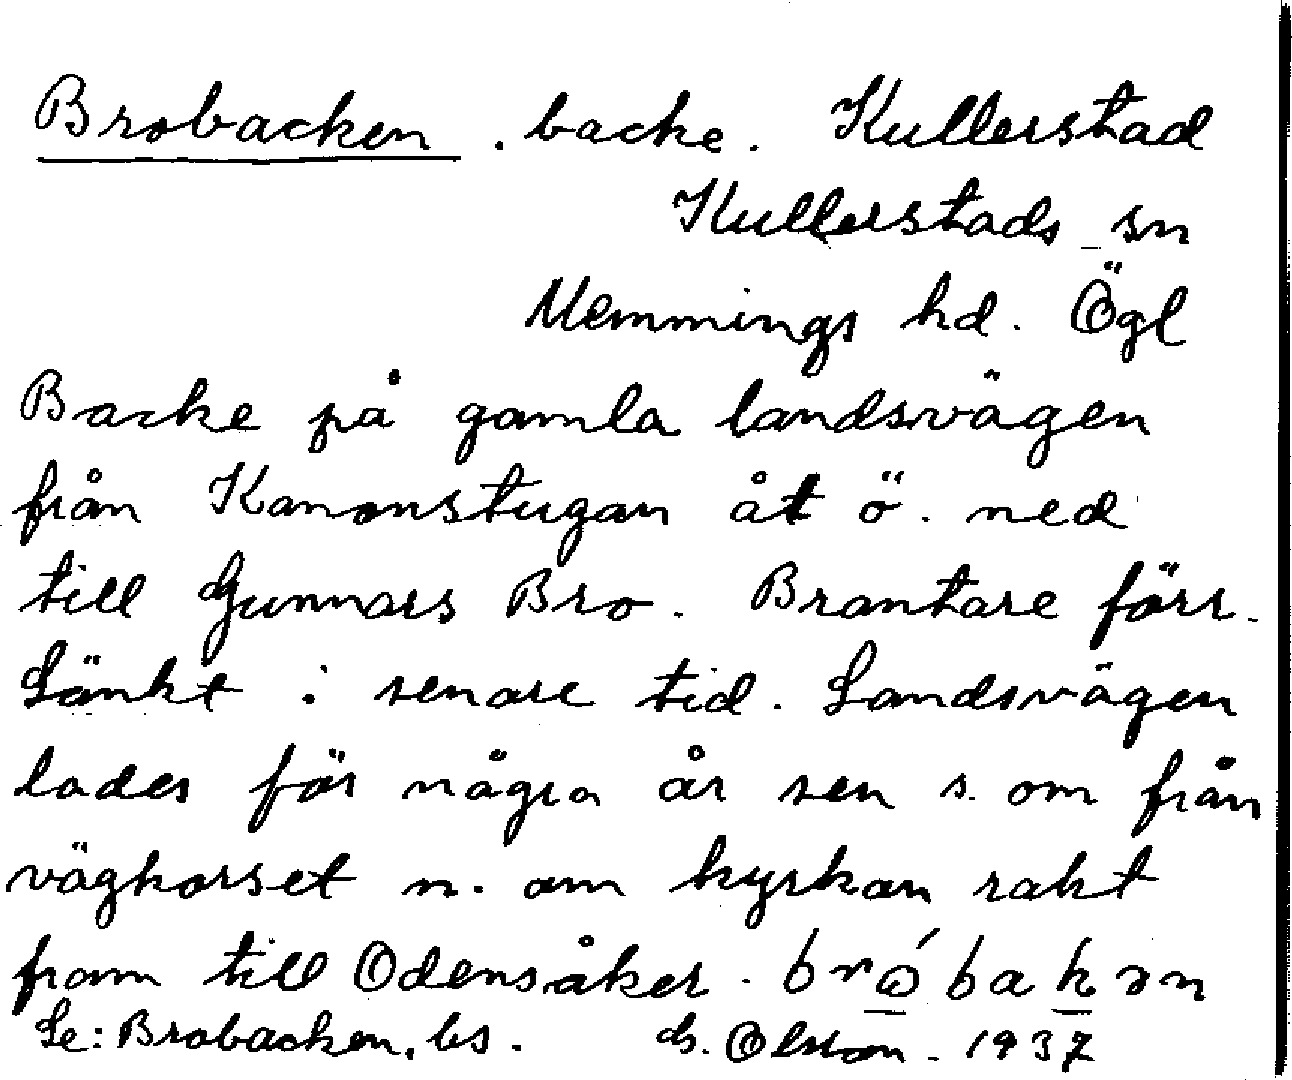 Brobacken . backe. Kullerstad
Kullerstads sn
Memmings hd. Ögl
Backe på gamla landsvägen
från Kanonstugan åt ö. ned
till Gunnars Bro. Brantare förr.
Sänkt i senare tid. Landsvägen
lades för några år sen s. om från
vägkorset n. om kyrkan rakt
fram till Odensåker.
Se: Brobacken, bs. Olsson. 1937